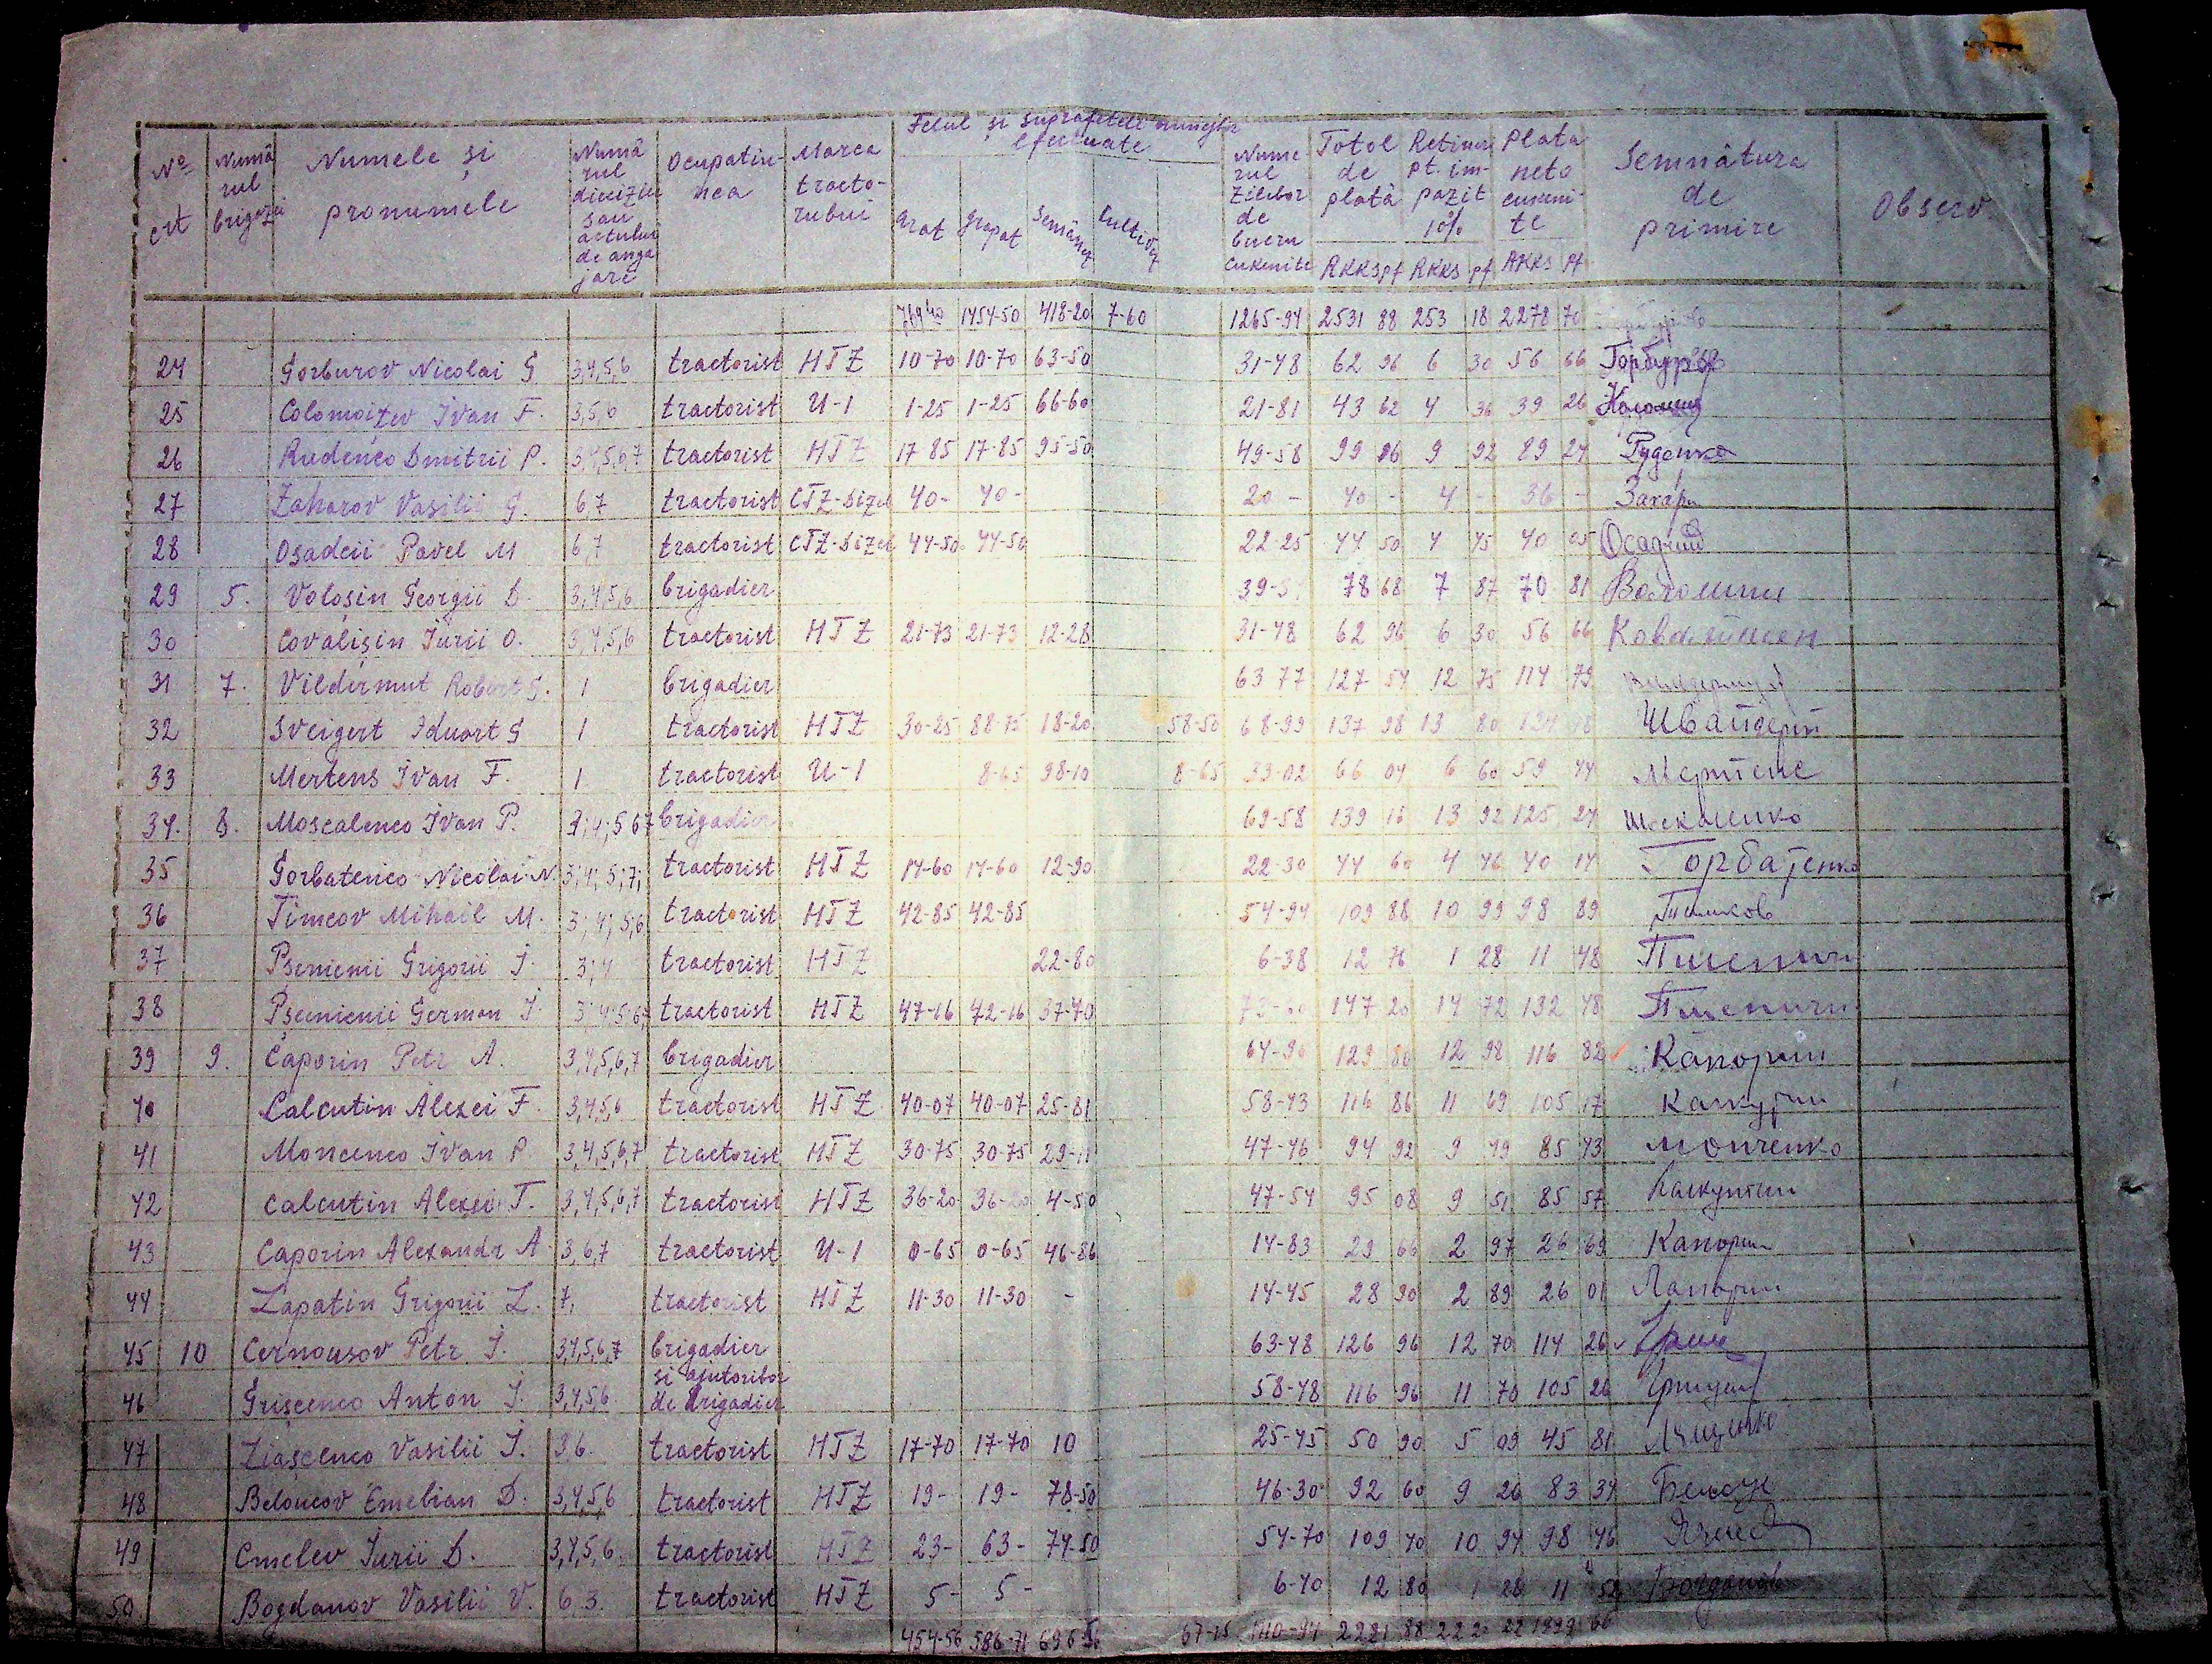 Nº crt | Numărul brigăzii | Numele și pronumele | Numărul deciziei sau actului de angajare | Ocupatiunea | Marca tractorului | Felul și suprafetele efectuate | Arat | Grapat | Semănat | Cultivat | Numerul zilelor de lucru | Total de plată RKKS pf | Retineri pt. impozit 10% RKKS pf | Plata neto cuvenite RKKS pf | Semnătura de primire | Observ.
769-40 1454-50 418-20 7-60 1265-94 2531 88 253 18 2278 70
24 Gorburov Nicolai G. 3,4,5,6 tractorist HTZ 10-70 10-70 63-50 31-48 62 96 6 30 56 66 Горбуров
25 Colomoițev Ivan F. 3,5,6 tractorist U-1 1-25 1-25 66-60 21-81 43 62 4 36 39 26
26 Rudenco Dmitrii P. 3,4,5,6,7 tractorist HTZ 17-85 17-85 95-50 49-58 99 16 9 92 89 24 Руденко
27 Zaharov Vasilii G. 6,7 tractorist CTZ-Dizel 40- 40- 20 - 40 - 4 - 36 - Захаров
28 Osadcii Pavel M 6,7 tractorist CTZ-Dizel 44-50 44-50 22-25 44 50 4 45 40 05 Осадчий
29 5. Voloșin Georgii D. 3,4,5,6 brigadier 78 68 7 87 70 81 Волошин
30 Covalișin Iurii O. 3,4,5,6 tractorist HTZ 21-73 21-73 12-28 31-48 62 96 6 30 56 66 Ковалишен
31 7. Vildermut Robert G. 1 brigadier 63 77 127 54 12 75 114 79
32 Sveigert Iduart G 1 tractorist HTZ 30-25 88-75 18-20 58-50 68-99 137 98 13 80 124 18 Швайдерт
33 Mertens Ivan F. 1 tractorist U-1 8-65 98-10 8-65 33-02 66 04 6 60 59 44 Мертенс
34. 8. Moscalenco Ivan P. 3;4;5 67 brigadier 69-58 139 16 13 92 125 24
35 Gorbatenco Nicolai N. 3;4;5;7; tractorist HTZ 14-60 14-60 12-90 22-30 44 60 4 46 40 14 Горбатенко
36 Timcov Mihail M. 3;4;5;6 tractorist HTZ 42-85 42-85 54-94 109 88 10 99 98 89 Тимков
37 Pșenicnii Grigorii I. 3;4 tractorist HTZ 22-80 6-38 12 76 1 28 11 48 Пшенич
38 Pșenicnii German I. 3;4;5;6,7 tractorist HTZ 47-16 72-16 37-70 73-60 147 20 14 72 132 48 Пшенични
39 9. Caporin Petr A. 3,4,5,6,7 brigadier 64-90 129 80 12 98 116 82 Капорин
40 Calcutin Alexei F. 3,4,5,6 tractorist HTZ 40-07 40-07 25-81 58-43 116 86 11 69 105 17 Калкутин
41 Moncenco Ivan P. 3,4,5,6,7 tractorist HTZ 30-75 30-75 29-11 47-46 94 92 9 49 85 43 Монченко
42 Calcutin Alexei T. 3,4,5,6,7 tractorist HTZ 36-20 36-20 4-50 47-54 95 08 9 51 85 57 Калкутин
43 Caporin Alexandr A 3,6,7 tractorist U-1 0-65 0-65 46-86 14-83 29 66 2 97 26 69 Капорин
44 Lapatin Grigorii L. 7, tractorist HTZ 11-30 11-30 - 14-45 28 90 2 89 26 01
45 10 Cernousov Petr I. 3,4,5,6,7 brigadier 63-48 126 96 12 70 114 26
46 Grișcenco Anton I. 3,4,5,6 si ajutoribor de brigadier 58-48 116 96 11 70 105 26
47 Liașcenco Vasilii I. 3 6. tractorist HTZ 17-70 17-70 10 25-45 50 90 5 09 45 81
48 Beloucov Emelian D. 3,4,5,6 tractorist HTZ 19- 19- 78-50 46-30 92 60 9 26 83 34
49 Cmelev Iurii D. 3,4,5,6. tractorist HTZ 23- 63- 74-50 54-70 109 40 10 94 98 46
50 Bogdanov Vasilii V. 6 3. tractorist HTZ 5- 5- 6-40 12 80 1 28 11 52 Богданов
454-56 586-71 67-15 1110-94 2221 88 222 22 1999 66